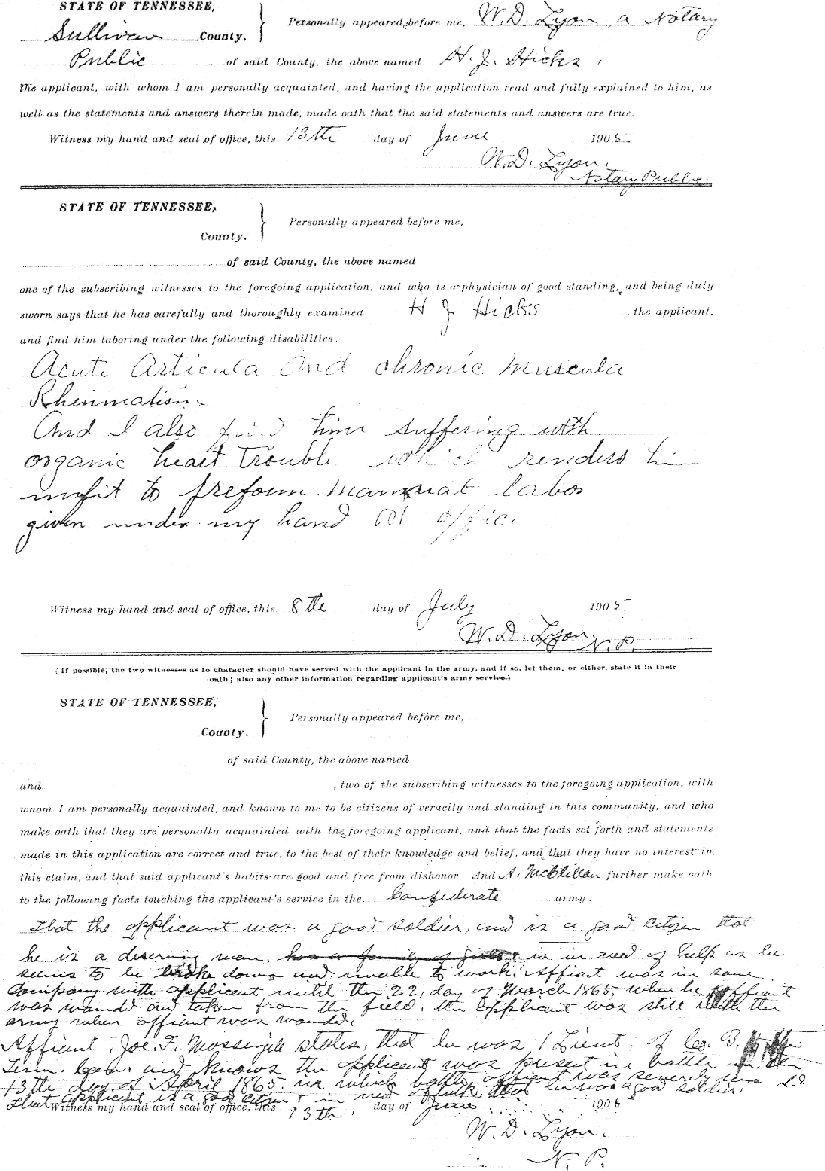 STATE OF TENNESSEE,
Sullivan County.
Personally appeared before me, W. D. Lyon, a Notary
Public of said County, the above named H. J. Hicks,
the applicant, with whom I am personally acquainted, and having the application read and fully explained to him, as
well as the statements and answers therein made, made oath that the said statements and answers are true.
Witness my hand and seal of office, this 13th day of June 1905
W. D. Lyon.
Notary Public
STATE OF TENNESSEE,
County.
Personally appeared before me,
of said County, the above named
one of the subscribing witnesses to the foregoing application, and who is a physician of good standing, and being duly
sworn says that he has carefully and thoroughly examined H J Hicks the applicant,
and find him laboring under the following disabilities.
Acute Articula and chronic muscula
Rheumatism
And I also find him suffering with
organic heart trouble which renders
unfit to preform manual labor
given under my hand office.
Witness my hand and seal of office, this 8th day of July 1905
W. D. Lyon N. P.
(If possible, the two witnesses as to character should have served with the applicant in the army, and if so, let them, or either, state it in their
oath; also any other information regarding applicant's army service.)
STATE OF TENNESSEE,
County.
Personally appeared before me,
of said County, the above named
and , two of the subscribing witnesses to the foregoing application, with
whom I am personally acquainted, and known to me to be citizens of veracity and standing in this community, and who
make oath that they are personally acquainted with the foregoing applicant, and that the facts set forth and statements
made in this application are correct and true, to the best of their knowledge and belief, and that they have no interest in
this claim, and that said applicant's habits are good and free from dishonor And A. McClellan further make oath
to the following facts touching the applicant's service in the Confederate army.
that the applicant was a good soldier, and is a good citizen that
he is a deserving man, is in need of help as he
seems to be broke down and unable to work. Affiant was in same
Company with applicant until the 22, day of March 1865, when he affiant
was wounded and taken from the field, the applicant was still with the
army when affiant was wounded.
Affiant, Joe. F. states, that he was 1 Lieut, of Co. B.
Tenn. and knows the applicant was present in battle
13th day of April 1865 in which battle affiant was severely
that applicant is a good citizen in need was a good soldier.
Witness my hand and seal of office, this 13th, day of June 1905
W. D. Lyon.
N. P.